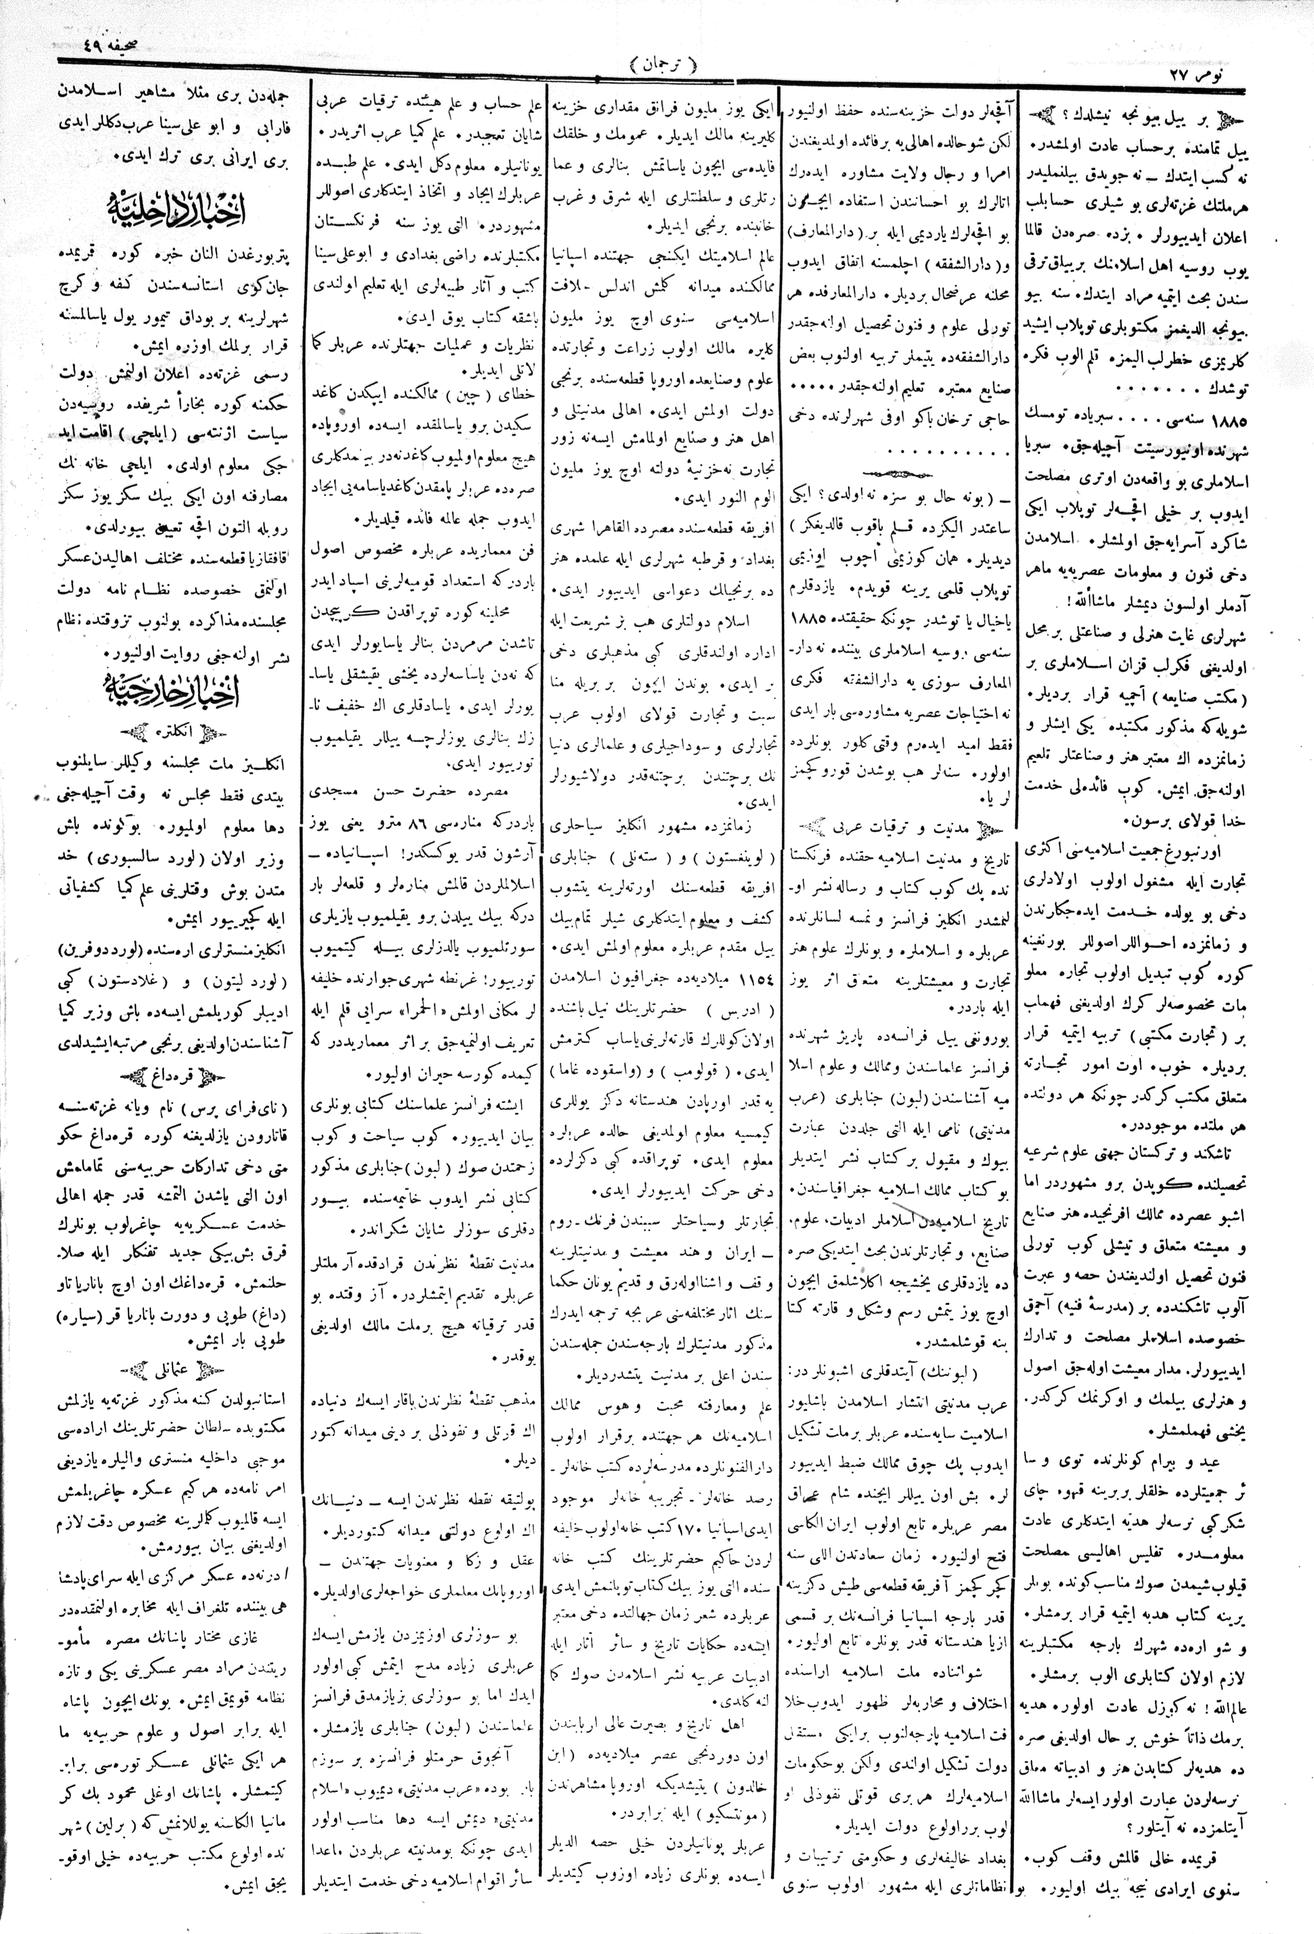 نومر ٢٧
( ترجمان )
صحیفه ٤٩
بر ییل بیونجه نیشلدك؟
ییل تمامنده برحساب عادت اولمشدر.
نه کسب ایتدك ـ نه جویدق بیلنملیدر
هرملتك غزته‌لری بو شیلری حسابلب
اعلان ایدییورلر. بزده صره‌دن قالما
یوب روسیه اهل اسلامنك برییلق ترقی
سندن بحث ایتمیه مراد ایتدك. سنه بیو
بیونجه الدیغمز مکتوبلری توپلاب ایشید
کلریمزی خطرلب الیمزه قلم الوب فکره
توشدك . . . . . . .
١٨٨٥ سنه‌سی . . . . سبریاده تومسك
شهرنده اونیورسیتت آچیله‌جق. سبریا
اسلاملری بو واقعه‌دن اوتری مصلحت
ایدوب بر خیلی اقچه‌لر توپلاب ایکی
شاکرد آسرایه‌جق اولمشلر. اسلامدن
دخی فنون و معلومات عصریه‌یه ماهر
آدملر اولسون دیمشلر ماشأالله!
شهرلری غایت هنرلی و صناعتلی بر محل
اولدیغنی فکرلب قزان اسلاملری بر
(مکتب صنایعه) آچمیه قرار بردیلر.
شویله‌که مذکور مکتبده یکی ایشلر و
زمانمزده اك معتبر هنر و صناعتلر تلعیم
اولنه‌جق ایمش. کوپ فائده‌لی خدمت
خدا قولای برسون.
اورنبورغ جمعیت اسلامیه‌سی اکثری
تجارت ایله مشغول اولوب اولادلری
دخی بو یولده خدمت ایده‌جکارندن
و زمانمزده احواللر اصوللر بورنغینه
کوره کوب تبدیل اولوب تجاره معلو
مات مخصوصه‌لر کرك اولدیغنی فهملب
بر (تجارت مکتبی) تربیه ایتمیه قرار
بردیلر. خوب. اوت امور تجارته
متعلق مکتب کرکدر چونکه هر دولتده
هر ملتده موجوددر.
تاشکند و ترکستان جهتی علوم شرعیه
تحصیلنده کوپدن برو مشهوردر اما
اشبو عصرده ممالك افرنجیده هنر صنایع
و معیشته متعلق و تیشلی کوب تورلی
فنون تحصیل اولندیغندن حصه و عبرت
آلوب تاشکندده بر (مدرسهٔ فنیه) آچمق
خصوصده اسلاملر مصلحت و تدارك
ایدییورلر. مدار معیشت اوله‌جق اصول
و هنرلری بیلمك و اوکرنمك کرکدر.
یخشی فهملمشلر.
عید و بیرام کونلرنده توی و سا
ئر جمعیتلرده خلقلر بربرینه قهوه چای
شکر کبی نرسه‌لر هدیه ایتدکلری عادت
معلومدر. تفلیس اهالیسی مصلحت
قیلوب شیمدن صوك مناسب کونده بولر
یرینه کتاب هدیه ایتمیه قرار برمشلر.
و شو اره‌ده شهرك بارجه مکتبلرینه
لازم اولان کتابلری الوب برمشلر.
عالمالله! نه کوزل عادت اولور. هدیه
برمك ذاتاً خوش بر حال اولدیغی صره
ده هدیه‌لر کتابدن هنر و ادبیاته متعلق
نرسه‌لردن عبارت اولور ایسه‌لر ماشاالله
آیتلمزده نه آیتلور؟
قریمده خالی قالمش وقف کوب.
سنوی ایرادی نیجه بیك اولیور. بو
آقچه‌لر دولت خزینه‌سنده حفظ اولنیور
لکن شوحالده اهالی‌یه برفائده اولمدیغندن
امرا و رجال ولایت مشاوره ایده‌رك
اتالرك بو احساننذن استفاده ایچون
بو اقچه‌لرك یاردیمی ایله بر (دارالمعارف)
و(دارالشفقه) اچلمسنه اتفاق ایدوب
محلنه عرضحال بردیلر. دارالمعارفده هر
تورلی علوم و فنون تحصیل اولنه‌جقدر
دارالشفقه‌ده یتیملر تربیه اولنوب بعض
صنایع معتبره تعلیم اولنه‌جقدر . . . . .
حاجی ترخان باکو اوفی شهرلرنده دخی
. . . . . . . . . .
ـ ( بونه حال بو سزه نه‌اولدی؟ ایکی
ساعتدر الیکزده قلم باقوب قالدیغکز )
دیدیلر. همان کوزیمی آچوب اوزیمی
توپلاب قلمی یرینه قویدم. یازدقلرم
یاخیال یا توشدر چونکه حقیقتده ١٨٨٥
سنه‌سی روسیه اسلاملری بیننده نه‌دار-
المعارف سوزی یه دارالشفقه فکری
نه احتیاجات عصریه مشاوره‌سی بار ایدی
فقط امید ایده‌رم وقتی کلور بونلرده
اولور. سنه‌لر هب بوشدن قوروکچمز
لر یا.
مدنیت و ترقیات عربی
تاریخ و مدنیت اسلامیه حقنده فرنکستا
نده پك کوب کتاب و رساله نشر او-
لنمشدر انکلیز فرانسز و نمسه لسانلرنده
عربلره و اسلاملره و بونلرك علوم هنر
تجارت و معیشتلرینه متعلق اثر یوز
ایله باردر.
بورونغی ییل فرانسه‌ده پاریز شهرنده
فرانسز علماسندن وممالك و علوم اسلا
میه آشناسندن (لبون) جنابلری (عرب
مدنیتی) نامی ایله التی جلددن عبارت
بیوك و مقبول بر کتاب نشر ایتدیلر
بو کتاب ممالك اسلامیه جغرافیاسندن.
تاریخ اسلامیه‌دن اسلاملر ادبیات، علوم،
صنایع، و تجارتلرندن بحث ایتدیکی صره
ده یازدقلری یخشیجه اکلاشلمق ایچون
اوچ یوز یتمش رسم وشکل و قارته کتا
بنه قوشلمشدر.
(لبوننك) آیتدقلری اشبونلر در:
عرب مدنیتی انتشار اسلامدن باشلیور
اسلامیت سایه‌سنده عربلر برملت تشکیل
ایدوب پك چوق ممالك ضبط ایدییور
لر. بش اون ییللر ایچنده شام عراق
مصر عربلره تابع اولوب ایران الکاسی
فتح اولنیور. زمان سعادتدن اللی سنه
کچر کچمز آفریقه قطعه‌سی طیش دکزینه
قدر بارجه اسپانیا فرانسه‌نك بر قسمی
ازیا هندستانه قدر بونلره تابع اولیور.
شواثناده ملت اسلامیه اراسنده
اختلاف و محاربه‌لر ظهور ایدوب خلا
فت اسلامیه پارچه‌لنوب برایکی مستقل
دولت تشکیل اولندی ولکن بوحکومات
اسلامیه‌لرك هربری قوتلی نفوذلی او
لوب برر اولوغ دولت ایدیلر.
بغداد خالیفه‌لری و حکومتی ترتیبات و
نظاماتلری ایله مشهور اولوب سنوی
ایکی یوز ملیون فرانق مقداری خزینه
کلیرینه مالك ایدیلر. عمومك و خلقك
فایده‌سی ایچون یاساتمش بنالری و عما
رتلری و سلطنتلری ایله شرق و غرب
خانبنده برنجی ایدیلر.
عالم اسلامیتك ایکنجی جهتنده اسپانیا
ممالکنده میدانه کلمش اندلس خلافت
اسلامیه‌سی سنوی اوچ یوز ملیون
کلیره مالك اولوب زراعت و تجارتده
علوم وصنایعده اوروپا قطعه‌سنده برنجی
دولت اولمش ایدی. اهالی مدنیتلی و
اهل هنر و صنایع اولمامش ایسه‌نه زور
تجارت نه‌خزنیهٔ دولته اوچ یوز ملیون
الوم النور ایدی.
افریقه قطعه‌سنده مصرده القاهرا شهری
بغداد و قرطبه شهرلری ایله علمده هنر
ده برنجیلك دعواسی ایدییور ایدی.
اسلام دولتلری هب بز شریعت ایله
اداره اولندقلری کبی مذهبلری دخی
بر ایدی. بوندن ایچون بر بریله منا
سبت و تجارت قولای اولوب عرب
تجارلری و سوداجیلری و علمالری دنیا
نك برچتندن برچتنه‌قدر دولاشیورلر
ایدی.
زمانمزده مشهور انکلیز سیاحلری
(لوینغستون) و (ستەنلی) جنابلری
افریقه قطعه‌سنك اورته‌لرینه یتشوب
کشف و معلوم ایتدکلری شیلر تمام‌بیك
ییل مقدم عربلره معلوم اولمش ایدی.
١١٥٤ میلادیه‌ده جغرافیون اسلامدن
( ادریس ) حضرتلرینك نیل باشنده
اولان کوللرك قارته‌لرینی یاساب کترمش
ایدی. (قولومب) و (واسقوده غاما)
یه قدر اورپادن هندستانه دکز یوللری
کیمسیه معلوم اولمدیغی حالده عربلره
معلوم ایدی. توپراقده کبی دکزلرده
دخی حرکت ایدییورلر ایدی.
تجارتلر وسیاحتلر سببندن فرنك ـ روم
ـ ایران و هند معیشت و مدنیتلرینه
وقف و اشنااوله‌رق و قدیم یونان حکما
سنك اثار مختلفه‌سی عربجه ترجمه ایدرك
مذکور مدنیتلرك بارجه‌سندن جمله‌سندن
سندن اعلی بر مدنیت یتشدردیلر.
علم ومعارفته محبت و هوس ممالك
اسلامیه‌نك هر جهتنده برقرار اولوب
دارالفنونلرده مدرسه‌لرده کتب خانه‌لر ـ
رصد خانه‌لر ـ تجریبه خانه‌لر موجود
ایدی اسپانیا ١٧٠ کتب خانه اولوب خلیفه
لردن حاکیم حضرتلرینك کتب خانه
سنده التی یوز بیك کتاب توپلانمش ایدی
عربلرده شعر زمان جهالتده دخی معتبر
ایسه‌ده حکایات تاریخ و سائر آثار ایله
ادبیات عربیه نشر اسلامدن صوك کما
لنه کلدی.
اهل تاریخ و بصیرت عالی اربابندن
اون دوردنجی عصر میلادیه‌ده (ابن
خالدون) یتیشدیکه اوروپا مشاهرندن
(مونتسکیو) ایله برابردر.
عربلر یونانیلردن خیلی حصه الدیلر
ایسه‌ده بونلری زیاده اوزوب کیتدیلر
علم حساب و علم هیئتده ترقیات عربی
شایان تعجبدر. علم کمیا عرب اثریدر.
یونانیلره معلوم دکل ایدی. علم طبده
عربلرك ایجاد و اتخاذ ایتدکلری اصوللر
مشهوردر. التی یوز سنه فرنکستان
مکتبلرنده راضی بغدادی و ابوعلی‌سینا
کتب و آثار طبیه‌لری ایله تعلیم اولندی
باشقه کتاب یوق ایدی.
نظریات و عملیات جهتلرنده عربلر کما
لاتلی ایدیلر.
خطای (چین) ممالکنده ایپکدن کاغد
سکیدن برو یاسالمقده ایسه‌ده اوروپاده
هیچ معلوم اولمیوب کاغدنه‌در بیلمدکلری
صره‌ده عربلر پامقدن کاغدیاسامه‌یی ایجاد
ایدوب جمله عالمه فائده قیلدیلر.
فن معماریده عربلره مخصوص اصول
باردرکه استعداد قومیه‌لرینی اسپاد ایدر
محلینه کوره توپراقدن کرپچدن
تاشدن مرمردن بنالر یاسایورلر ایدی
که نه‌دن یاساسه‌لرده یخشی یقیشقلی یاسا-
یورلر ایدی. یاسادقلری اك خفیف نا-
زك بنالری یوزلرچه ییللر یقیلمیوب
تورییور ایدی.
مصرده حضرت حسن مسجدی
باردرکه مناره‌سی ٨٦ مترو یعنی یوز
آرشون قدر یوکسکدر! اسپانیاده ـ
اسلاملردن قالمش مناره‌لر و قلعه‌لر بار
درکه بیك ییلدن برو یقیلمیوب یازیلری
سورتلمیوب یالدزلری بیله کیتمیوب
تورییور! غرنطه شهری جوارنده خلیفه
لر مکانی اولمش «الحمرا» سرایی قلم ایله
تعریف اولنمیه‌جق بر اثر معماریددر که
کیمده کورسه حیران اولیور.
ایشته فرانسز علماسنك کتابی بونلری
بیان ایدییور. کوب سیاحت و کوب
زحمتدن صوك (لبون) جنابلری مذکور
کتابی نشر ایدوب خاتیمه‌سنده بیور
دقلری سوزلر شایان شکراندر.
مدنیت نقطهٔ نظرندن قرادقده آز ملتلر
عربلره تقدیم ایتمشلردر. آز وقتده بو
قدر ترقیاته هیچ برملت مالك اولدیغی
یوقدر.
مذهب نقطهٔ نظرندن باقار ایسه‌ك دنیاده
اك قوتلی و نفوذلی بر دینی میدانه کتور
دیلر.
پولتیقه نقطه نظرندن ایسه ـ دنیانك
اك اولوغ دولتی میدانه کتوردیلر.
عقل و زکا و معنویات جهتندن ـ
اوروپانك معلملری خواجه‌لری اولدیلر.
بو سوزلری اوزیمزدن یازمش ایسه‌ك
عربلری زیاده مدح ایتمش کبی اولور
ایدك اما بو سوزلری بزیازمدق فرانسز
علماسندن (لبون) جنابلری یازمشلر.
آنجوق حرمتلو فرانسزه بر سوزم
بار. بوده «عرب مدنیتی» دیمیوب «اسلام
مدنیتی» دیمش ایسه دها مناسب اولور
ایدی چونکه بومدنیته عربلردن ماعدا
سائر اقوام اسلامیه دخی خدمت ایتدیلر
جمله‌دن بری مثلا مشاهیر اسلامدن
فارابی و ابو علی سینا عرب دکللر ایدی
بری ایرانی بری ترك ایدی.
اخبار داخلیه
پتربورغدن النان خبره کوره قریمده
جان‌کوی استانسه‌سندن کفه و کرچ
شهرلرینه بر بوداق تیمور یول یاسالمسنه
قرار برلمك اوزره ایمش.
رسمی غزته‌ده اعلان اولنمش دولت
حکمنه کوره بخاراٰ شریفده روسیه‌دن
سیاست اژنته‌سی (ایلچی) اقامت اید
جکی معلوم اولدی. ایلچی خانه نك
مصارفنه اون ایکی بیك سکز یوز سکز
روبله التون اقچه تعیین بیورلدی.
قافقازیا قطعه‌سنده مختلف اهالیدن عسکر
اولنمق خصوصده نظام نامه دولت
مجلسنده مذاکرده بولنوب تزوقتده نظام
نشر اولنه‌جغی روایت اولنیور.
اخبار خارجیه
انکلتره
انکلیز مات مجلسنه وکیللر سایلنوب
بیتدی فقط مجلس نه وقت آچیله‌جغی
دها معلوم اولمیور. بوکونده باش
وزیر اولان (لورد سالسبوری) خد
متدن بوش وقتلرینی علم کمیا کشفیاتی
ایله کچیرییور ایمش.
انکلیز منسترلری اره‌سنده (لورددوفرین)
(لورد لیتون) و (غلادستون) کبی
ادیبلر کوریلمش ایسه‌ده باش وزیر کمیا
آشناسندن اولدیغی برنجی مرتبه ایشیدلدی
قره‌داغ
(نای‌فرای پرس) نام ویانه غزته‌سنه
قاتارودن یازلدیغنه کوره قره‌داغ حکو
متی دخی تدارکات حربیه‌سنی تمامله‌مش
اون التی یاشدن التمشه قدر جمله اهالی
خدمت عسکریه‌یه چاغرلوب بونلرك
قرق بش‌بیکی جدید تفنکلر ایله صلا-
حلنمش. قره‌داغك اون اوچ باناریا تاو
(داغ) طوپی و دورت باناریا قر (سیاره)
طوپی بار ایمش.
عثمانلی
استانبولدن کنه مذکور غزته‌یه یازلمش
مکتوبده سلطان حضرتلرینك اراده‌سی
موجبی داخلیه منستری والیلره یازدیغی
امر نامه‌ده هرکیم عسکره چاغریلمش
ایسه قالمیوب کلملرینه مخصوص دقت لازم
اولدیغنی بیان بیورمش.
ادرنه‌ده عسکر مرکزی ایله سرای پادشا
هی بیننده تلغراف ایله مخابره اولنمقده‌در
غازی مختار پاشانك مصره مأمو-
ریتندن مراد مصر عسکرینی یکی و تازه
نظامه قویمق ایمش. بونك ایچون پاشاه
ایله برابر اصول و علوم حربیه‌یه ما
هر ایکی عثمانلی عسکر توره‌سی برابر
کیتمشلر. پاشانك اوغلی محمود بك کر
مانیا الکاسنه یوللانمش که (برلین) شهر
نده اولوع مکتب حربیه‌ده خیلی اوقو-
یجق ایمش.